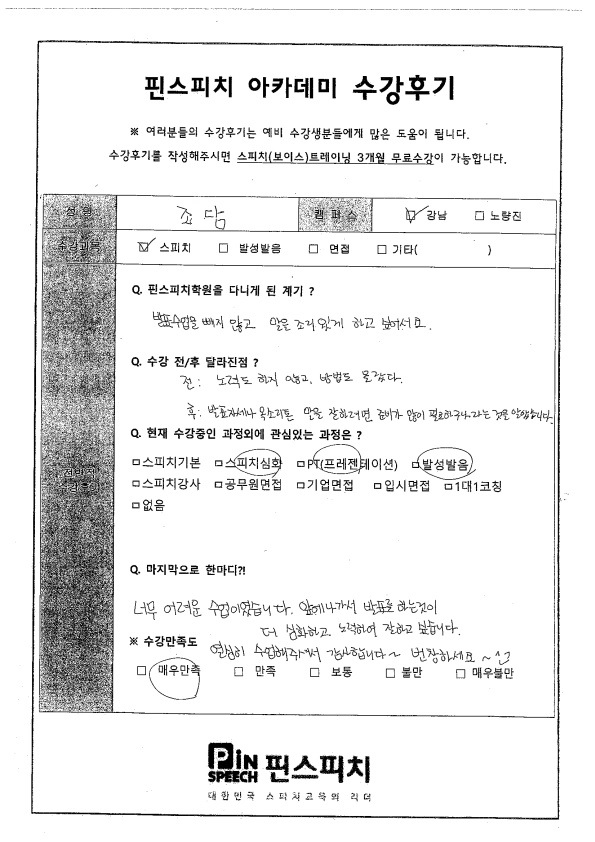 핀스피치 아카데미 수강후기
※ 여러분들의 수강후기는 예비 수강생분들에게 많은 도움이 됩니다.
수강후기를 작성해주시면 스피치(보이스)트레이닝 3개월 무료수강이 가능합니다.
성명 조담 캠퍼스 ☑ 강남 □ 노량진
수강과목 ☑ 스피치 □ 발성발음 □ 면접 □ 기타( )
Q. 핀스피치학원을 다니게 된 계기 ?
발표수업을 빼지 않고 말은 조리있게 하고 싶어서요.
Q. 수강 전/후 달라진점 ?
전: 노력도 하지 않고, 방법도 몰랐다.
후: 발표자세나 목소리톤 말을 잘하려면 준비가 많이 필요하구나라는 것을 알았습니다.
Q. 현재 수강중인 과정외에 관심있는 과정은 ?
□스피치기본 □스피치심화 □PT(프레젠테이션) □발성발음
□스피치강사 □공무원면접 □기업면접 □입시면접 □1대1코칭
□없음
수강후기
Q. 마지막으로 한마디?!
너무 어려운 수업이였습니다. 앞에나가서 발표로 하는것이
더 심화하고, 노력하여 잘하고 싶습니다.
※ 수강만족도 열심히 수업해주셔서 감사합니다~ 번창하세요~^^
□ 매우만족 □ 만족 □ 보통 □ 불만 □ 매우불만
PiN SPEECH 핀스피치
대한민국 스피치교육의 리더